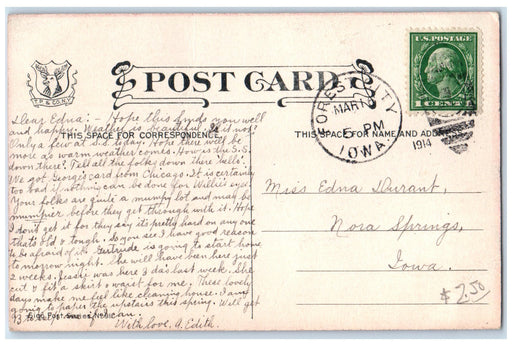 POST CARD
T.P. & CO. N.Y.
THIS SPACE FOR CORRESPONDENCE
THIS SPACE FOR NAME AND ADDRESS
U.S. POSTAGE
1 CENT 1
FOREST CITY
MAR 12
5 PM
IOWA
1914
Dear Edna:- Hope this finds you well
and happy. Weather is beautiful is it not?
Only a few at S.S. today. Hope there will be
more as warm weather comes. How is the S.S.
down there? Tell all the folks down there "hello".
We got George's card from Chicago. It is certainly
too bad if nothing can be done for Willie's eyes.
Your folks are quite a mumpy lot and may be
mumpier before they get through with it. Hope
I don't get it for they say it's pretty hard on any one
that's old & tough. So you see I have good reason
to be afraid of it. Gertrude is going to start home
tomorrow night. She will have been here just
2 weeks. Jessie was here 3 da's last week. She
cut & fit a skirt & waist for me. These lovely
days make me feel like cleaning house. I am
going to paper the upstairs this spring. Will get
if I can.
With love, A. Edith.
Miss Edna Durant,
Nora Springs,
Iowa.
$2.50